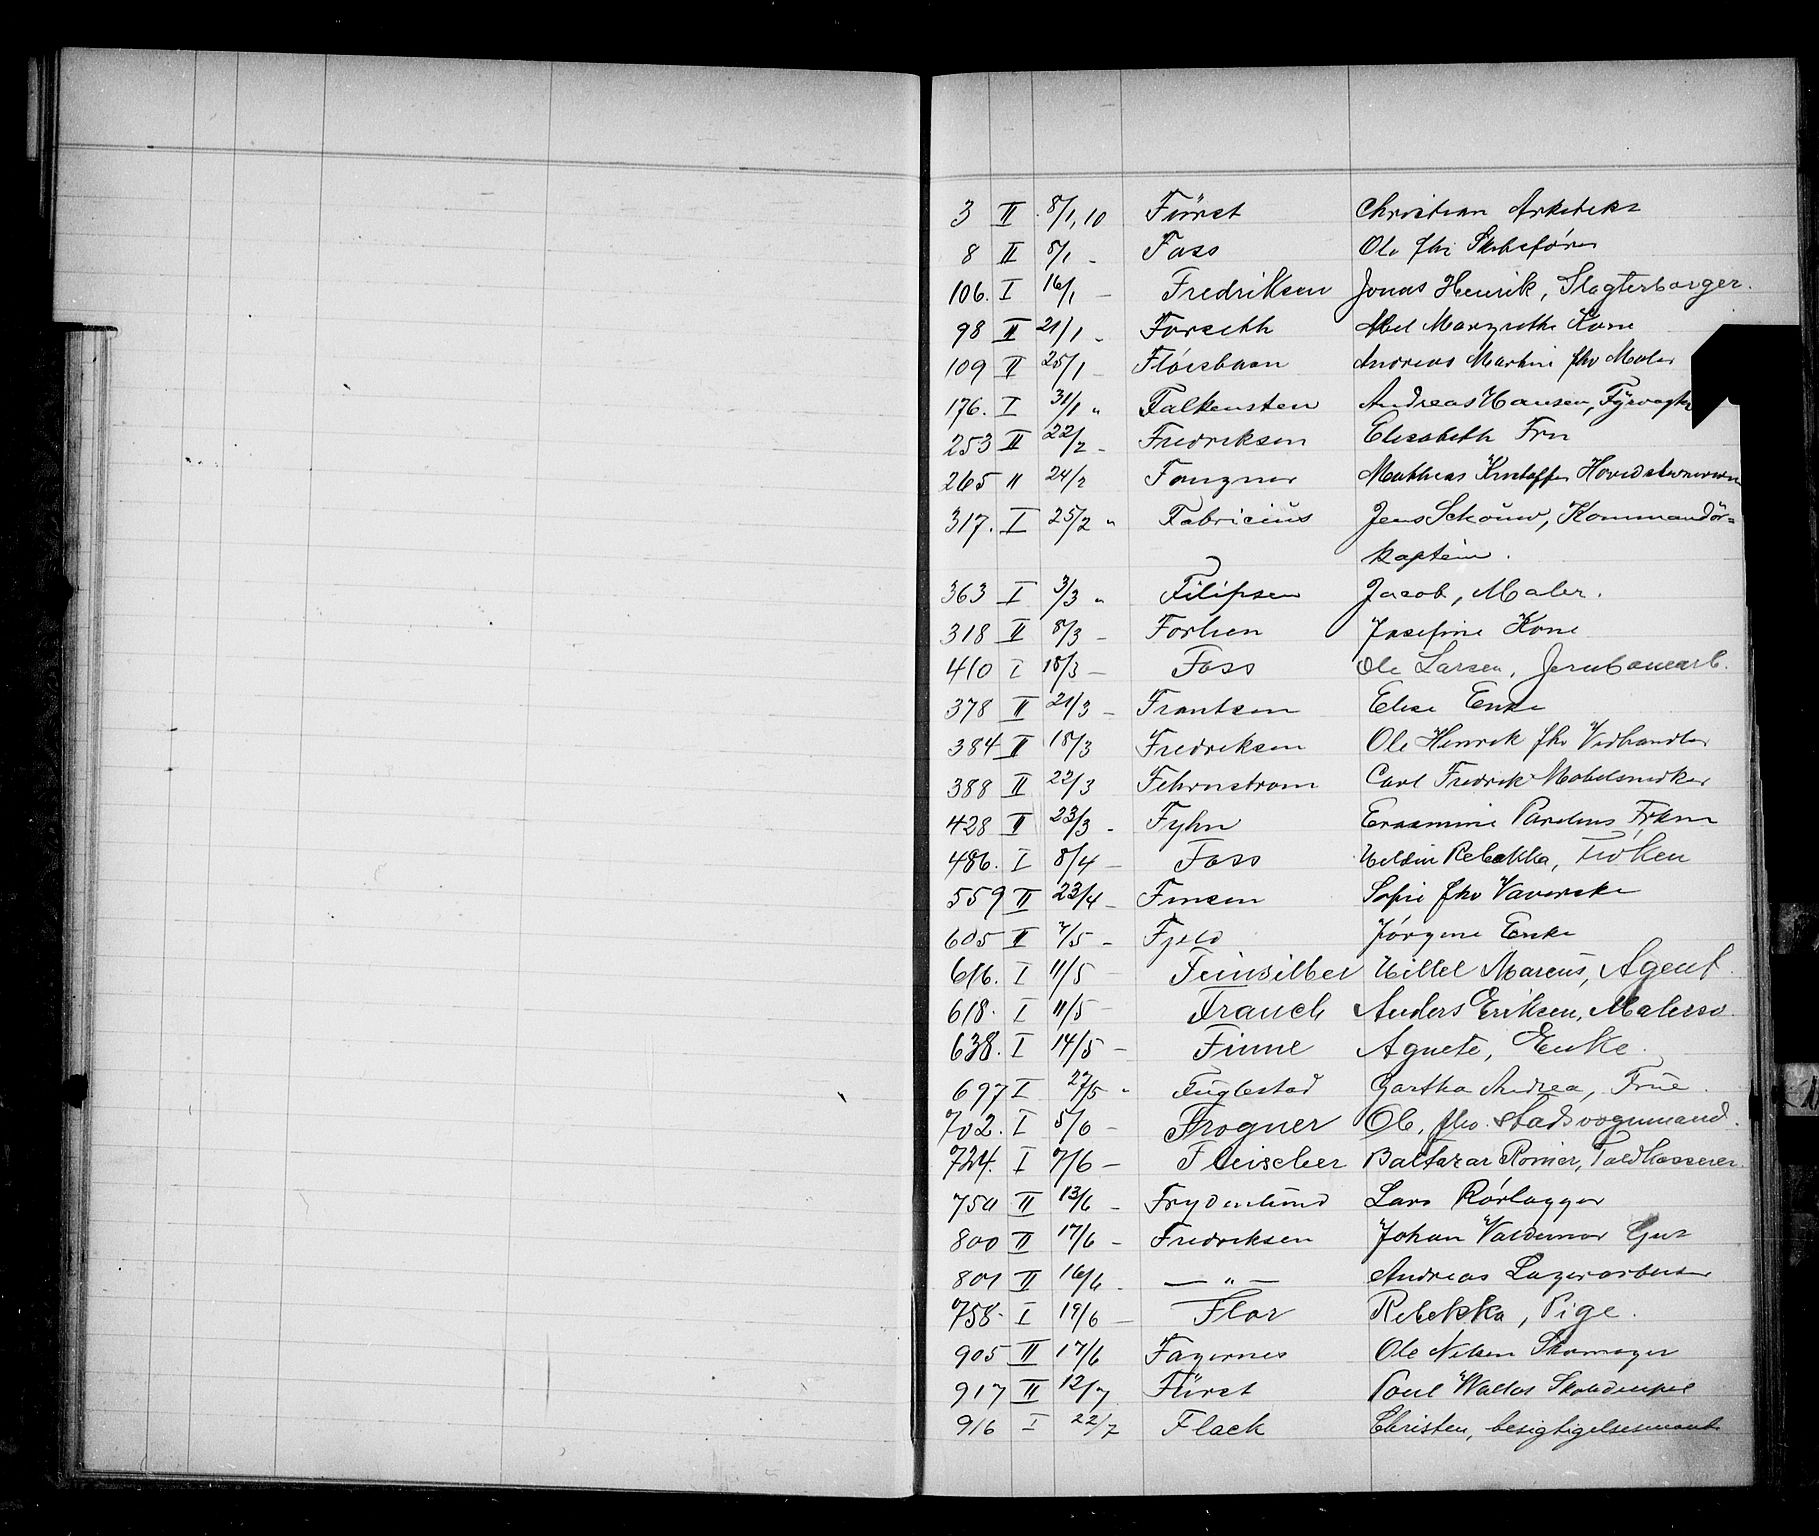 3 II 8/1, 10 Fürst Christian Arkitekt
8 II 8/1 - Foss Ole fhv Skibsfører
106. I 16/1 - Fredriksen Jonas Henrik, Slagterborger.
98 II 21/1 - Forseth Margrethe Kone
109 II 25/1 - Fløisbaan Andreas Martin fhv Maler
176. I 31/1 " Falkensten Andreas Hansen, Fyrvogter
253 II 22/2 - Fredriksen Elisabeth Fru
265 " 24/2 Fougner Mathias
317. I 25/2 " Fabricius Jens Schouw, Kommandör=
kaptein.
363 I 3/3 " Filipsen Jacob, Maler.
318 II 8/3 - Josefine Kone
410 I 18/3 - Foss Ole Larsen, Jernbanearb.
378 II 21/3 - Frantsen Elise Enke
384 II 18/3 Fredriksen Ole Henrik fhv Vedhandler
388 II 22/3 Fehrnstrom Carl Fredrik Møbelsnedker
428 II 23/3 - Fyhn Erasmine
486. I 8/4 - Foss Rebekka, Frøken
559 II 23/4 - Finsen Sofie fhv Væverske
605 II 7/5 - Fjeld Jørgine Enke
616. I 11/5 - Feinsilber Hillel Marcus, Agent.
618. I 11/5 - Franck Anders Eriksen, Malersv.
638. I 14/5 - Finne Agnete, Enke.
697 I 27/5 " Fuglestad Andrea, Frue.
702. I 5/6 - Frogner Ole, fhv. Stadsvognmand.
724. I 7/6 - Fleischer Baltazar Römer, Toldkasserer.
750 II 13/6 - Frydenlund Lars Rørlægger
800 II 17/6 - Fredriksen Johan Valdemar
801 II 16/6 - — " — Andreas Lagerarbeider
758. I 19/6 - Flor Rebekka, Pige.
905 II 17/6 Fagernes Ole Nilsen Skomager
917 II 12/7 Fürst Poul Skolediscipel
916 I 22/7 Flack Christen, besigtigelsesmand